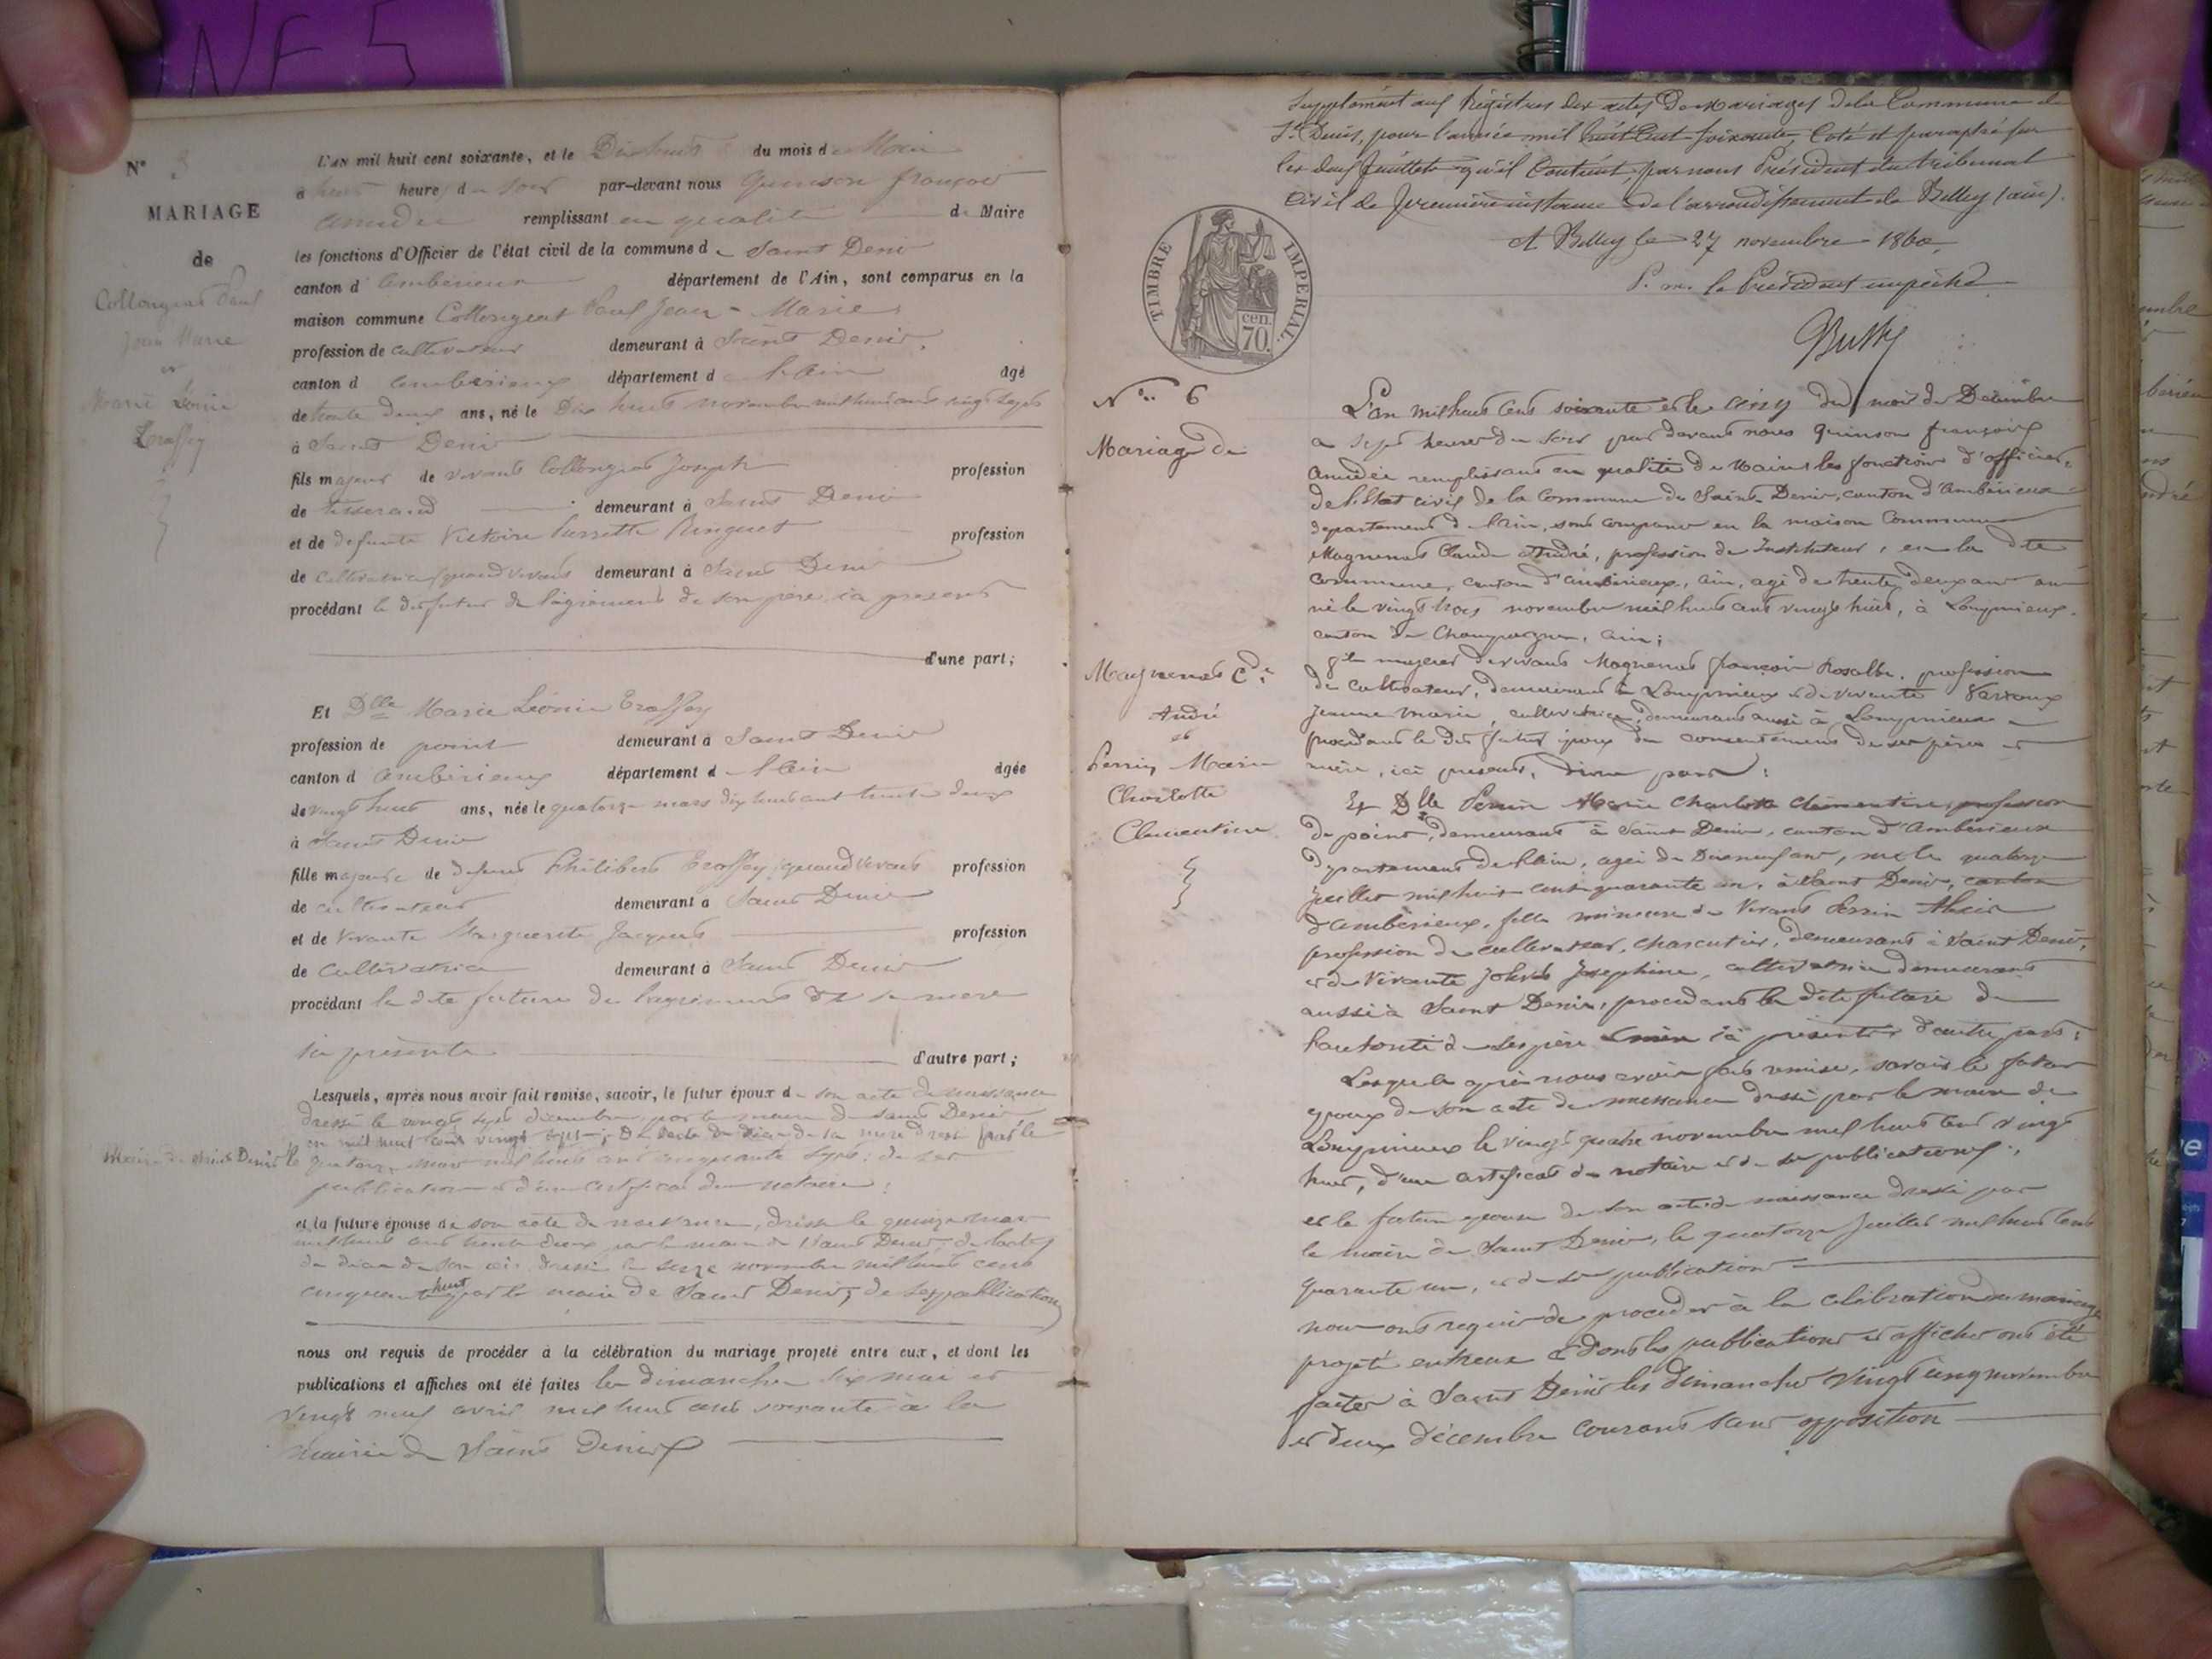 INF 5
N° 3
MARIAGE
de
Collongeat Paul
Jean Marie
et
Marie Léonie
Traffey
L'AN mil huit cent soixante, et le Dix huit du mois de Mai
à huit heures du soir par-devant nous Quinson françois
Amédée remplissant en qualité de Maire
les fonctions d'Officier de l'état civil de la commune de Saint Denis
canton d'Ambérieux département de l'Ain, sont comparus en la
maison commune Collongeat Paul Jean-Marie
profession de cultivateur demeurant à Saint Denis,
canton d'ambérieux département de l'ain âgé
de trente deux ans, né le Dix huit novembre mil huit cent vingt sept
à Saint Denis
fils majeur de vivant Collongeat Joseph profession
de tisserand demeurant à Saint Denis
et de defunte Victoire Pierrette profession
de cultivatrice quand vivait demeurant à Saint Denis
procédant le dit futur de l'agrément de son père ici présent
d'une part;
Et Dlle Marie Léonie Traffey
profession de point demeurant à Saint Denis
canton d'ambérieux département de l'ain âgée
de vingt huit ans, née le quatorze mars dix huit cent trente deux
à Saint Denis
fille majeure de defunt Philibert Traffey quand vivait profession
de cultivateur demeurant à Saint Denis
et de vivante Marguerite Jacquet profession
de cultivatrice demeurant à Saint Denis
procédant la dite future de l'agrément de sa mere
ici présente d'autre part;
Lesquels, après nous avoir fait remise, savoir, le futur époux de son acte de naissance
dressé le vingt sept décembre par le maire de Saint Denis
en mil huit cent vingt sept; de l'acte de décès de sa mere dressé par le
Maire de Saint Denis le quatorze mars mil huit cent cinquante sept; de ses
publications et d'un certificat du notaire;
et la future épouse de son acte de naissance, dressé le quinze mars
mil huit cent trente deux par le maire de Saint Denis, de l'acte
de décès de son père dressé le seize novembre mil huit cent
cinquante huit par le maire de Saint Denis, de ses publications
nous ont requis de procéder à la célébration du mariage projeté entre eux, et dont les
publications et affiches ont été faites les dimanches six mai et
vingt neuf avril mil huit cent soixante à la
mairie de Saint Denis
Supplément aux Régistres des actes de mariages de la Commune de
St Denis, pour l'année mil huit cent soixante, Coté et paraphé sur
les deux feuillets qu'il contient, par nous Président du tribunal
Civil de première instance de l'arrondissement de Belley (ain).
A Belley le 27 novembre 1860,
P. m. le Président empêché
TIMBRE IMPERIAL.
cen.
70.
N° 6
Mariage de
Magnenat C.de
André
et
Perrin Marie
Charlotte
Clementine
L'an mil huit cent soixante et le cinq du mois de Décembre
a sept heures du soir par devant nous Quinson françois
Amédée remplissant en qualité de Maire les fonctions d'officier
de l'Etat civil de la Commune de Saint Denis, canton d'Ambérieux
département de l'Ain, sont comparus en la maison Commune
Magnenat Claude André, profession de Instituteur, en la dte
commune, canton d'ambérieux, ain, agé de trente deux ans
né le vingt trois novembre mil huit cent vingt huit, à Lompnieux
canton de Champagne, ain;
fils majeur de vivant Magnenat françois profession
de cultivateur, demeurant à Lompnieux et de vivante
Jeanne Marie, cultivatrice, demeurant aussi à Lompnieux
procédant le dit futur époux du consentement de ses père et
mère, ici présents, d'une part;
Et Dlle Perrin Marie Charlotte Clémentine, profession
de point, demeurant à Saint Denis, canton d'Ambérieux
département de l'ain, agée de Dix neuf ans, née le quatorze
juillet mil huit cent quarante un, à Saint Denis, canton
d'Ambérieux, fille mineure de vivant Perrin Alexis
profession de cultivateur, charcutier, demeurant à Saint Denis,
et de vivante Josephine, cultivatrice demeurant
aussi à Saint Denis, procédant la dite future de
l'autorité de ses père & mère ici présents d'autre part;
Lesquels après nous avoir fait remise, savoir le futur
époux de son acte de naissance dressé par le maire de
Lompnieux le vingt quatre novembre mil huit cent vingt
huit, d'un certificat du notaire et de ses publications;
et la future épouse de son acte de naissance dressé par
le maire de Saint Denis, le quatorze juillet mil huit cent
quarante un, et de ses publications
nous ont requis de procéder à la célébration du mariage
projeté entre eux et dont les publications et affiches ont été
faites à Saint Denis les dimanches vingt cinq novembre
et deux décembre courant sans opposition